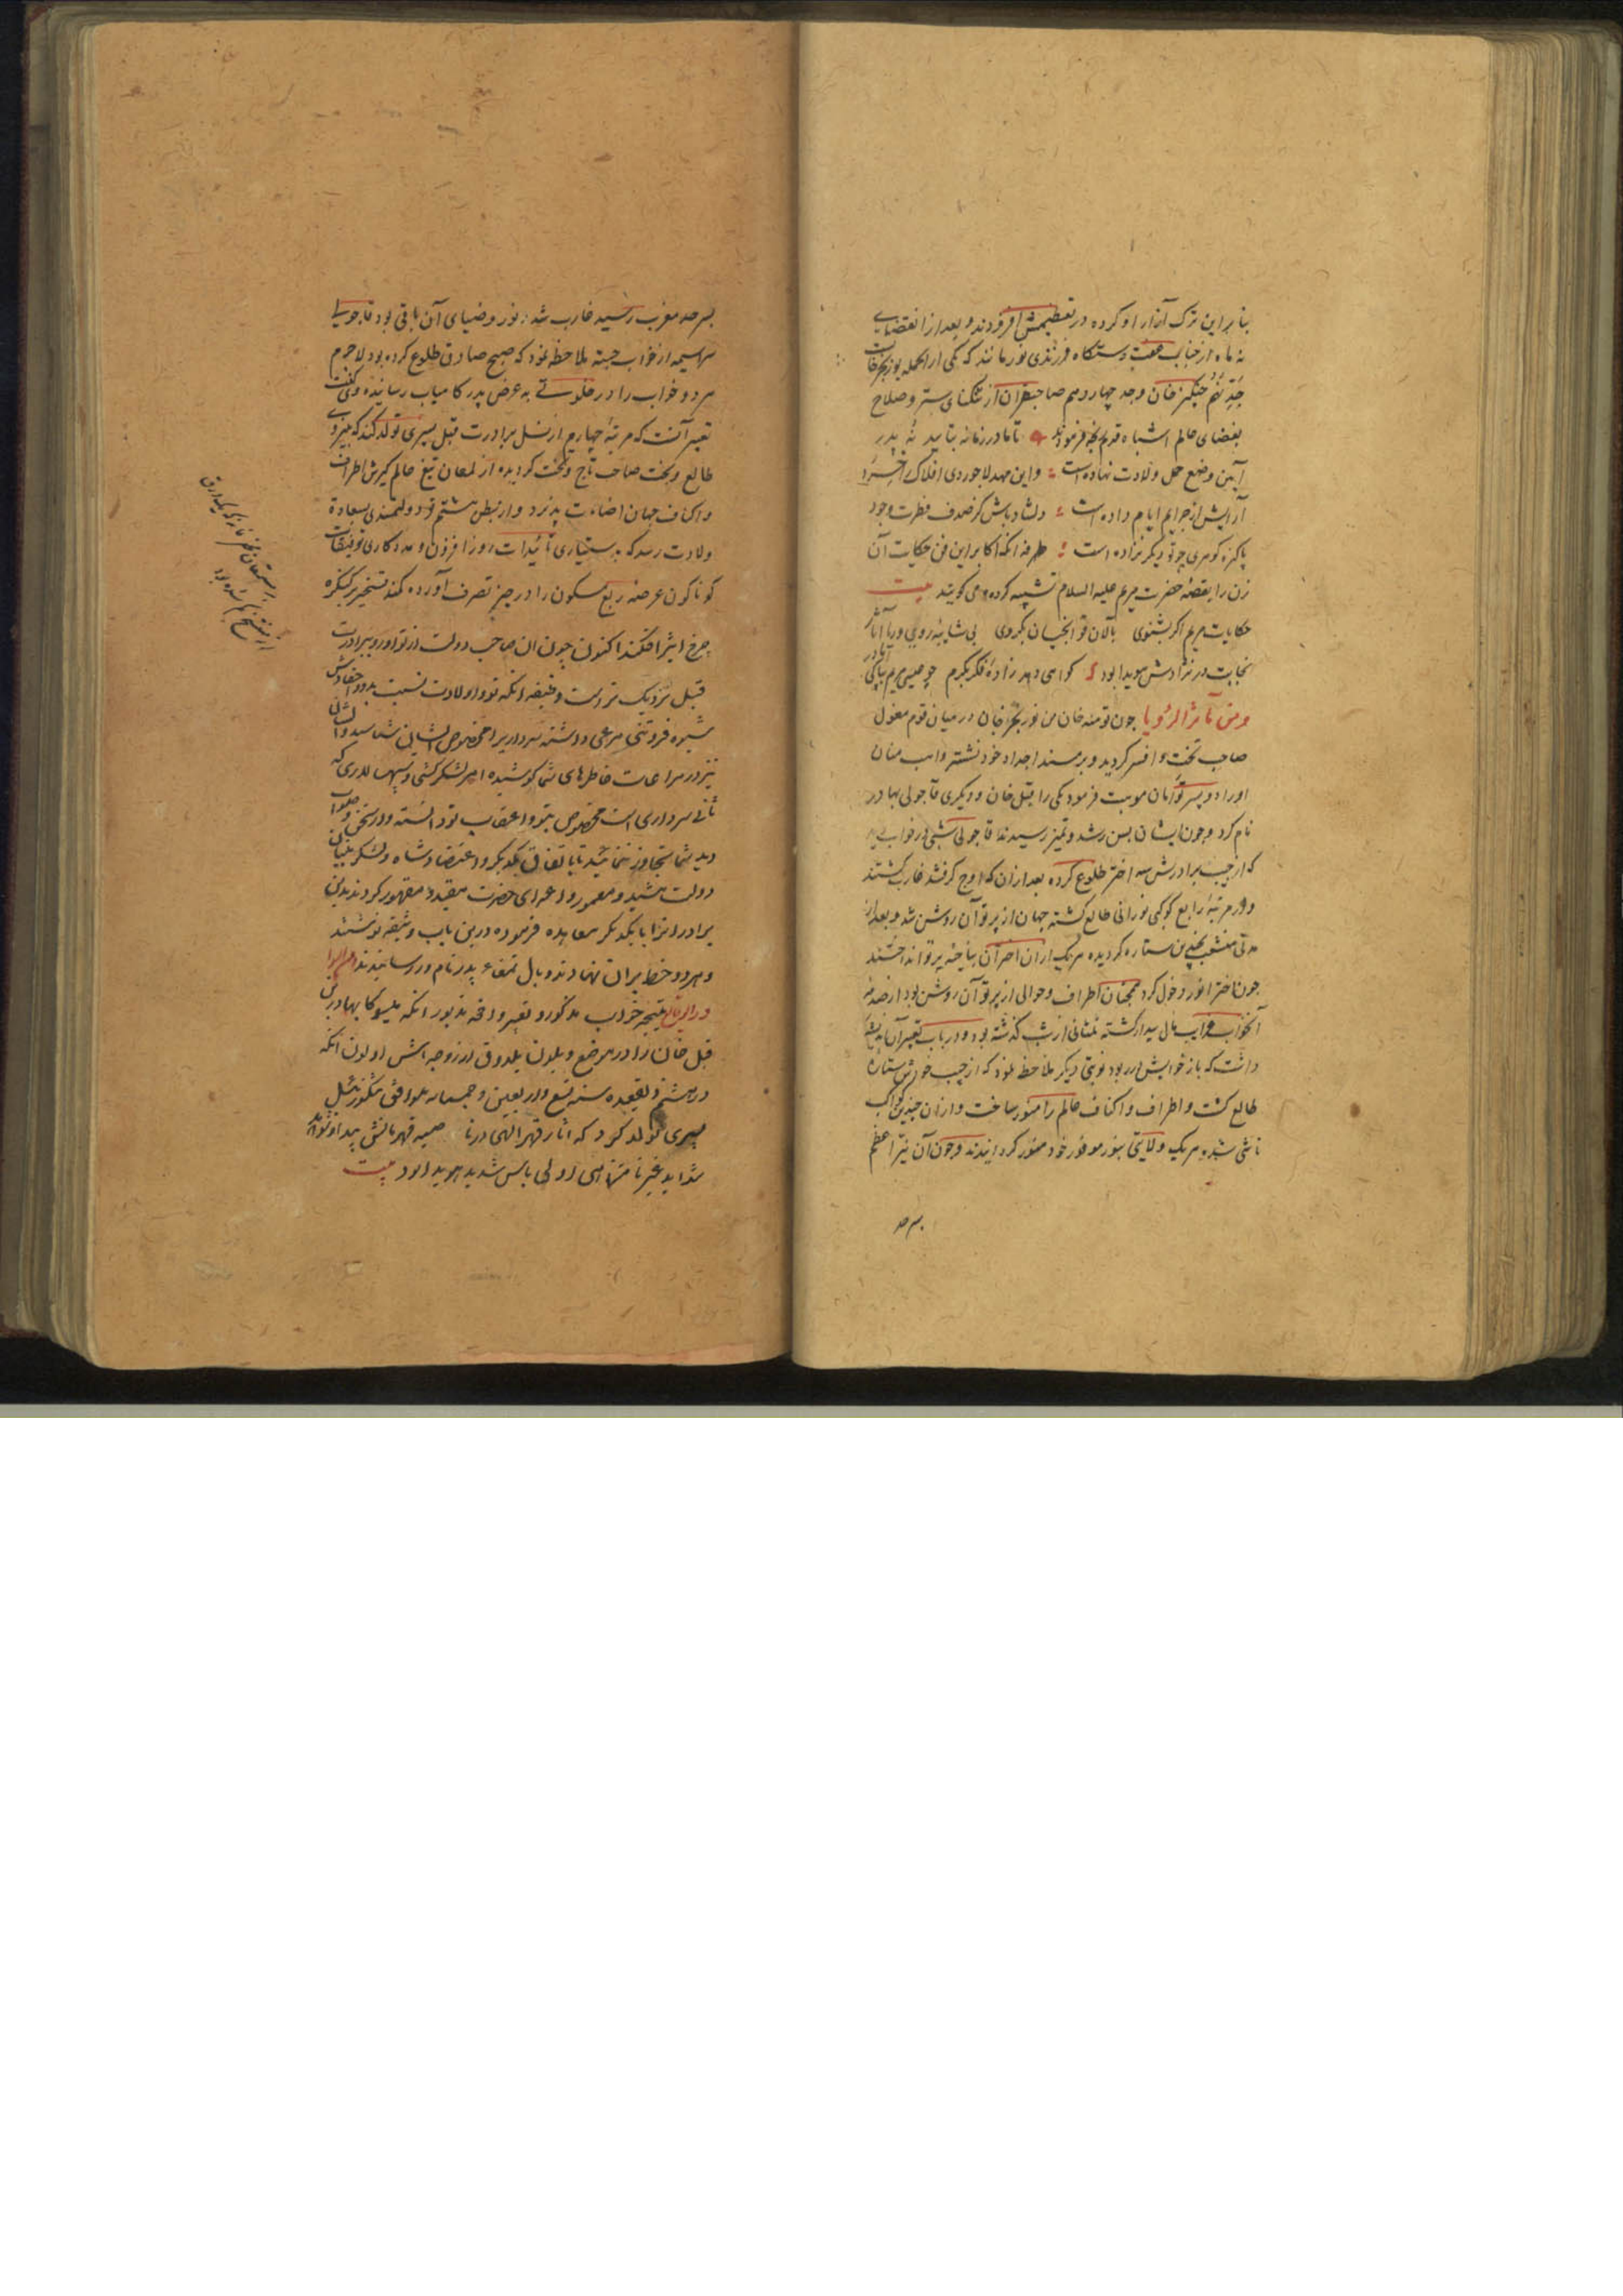 بنا براین ترک آزار او کرده در تعظیمش افزودند و بعد از انقضای
نه ماه از جناب عفت دستگاه فرزندی نورمانند که یکی از آنجمله بوزنجرخانست
جد نهم چنگیز خان وجد چهاردهم صاحبقران از تنگنای ستر و صلاح
بفضای عالم اشباه قدم رنجه فرمودند تا مادر زمانه بتایید نه پدر
آیین وضع حمل ولادت نهاده است واین مهد لاجوردی افلاک را
آرایش از جرایم ایام داده است دلشاد باش کز صدف فطرت وجود
پاکیزه گوهری چو تو دیگر نزاده است طرفه انکه اکابر این فن حکایت آن
زن را بقصه حضرت مریم علیه السلام تشبیه کرده می گویند بیت
حکایات مریم اگر بشنوی بالان قوا همچنان بگروی بی شایبه رویی وریا آثار
نجابت در نژادش هویدا بود گواهی دهد زاده فکر بکرم چو عیسی مریم بپاکی مادر
ومن مآثر الرؤیا چون تومنه خان من نور بخر خان در میان قوم مغول
صاحب تخت و افسر گردید و برمسند اجداد خود نشست واهب منان
اورا دو پسر توامان موهبت فرمود یکی را قبل خان و دیگری قاجولی بهادر
نام کرد وچون ایشان بسن رشد وتمیز رسیدند قاجولی شبی در خواب دید
که از جیب برادرش سه اختر طلوع کرده بعد از ان که اوج گرفتند غارب گشتند
و در مرتبه رابع کوکبی نورانی طالع گشته جهان از پرتو آن روشن شد و بعد از
مدتی منشعب بچندین ستاره گردیده هریک از ان اختران بناحیه پرتو انداختند
چون اختر انور دخول کرد همچنان اطراف وحوالی از پرتو آن روشن بود از صدمه
آنخواب بیدار گشته ثلثانی از شب گذشته بود و در باب تعبیر آن اندیشه
داشت که باز خوابش در ربود نوبتی دیگر ملاحظه نمود که از جیب خودش ستاره
طالع گشت و اطراف و اکناف عالم را منور ساخت و از ان چندین کواکب
ناشی شده هریک ولایتی بنور موفور خود منور گردانیدند وچون آن نیر اعظم
بسرحد
بسرحد مغرب رسید غارب شد نور وضیای آن باقی بود قاجولی
سراسیمه از خواب جسته ملاحظه نمود که صبح صادق طلوع کرده بود لاجرم
هر دو خواب را در خلوتی به عرض پدر کامیاب رسانیده وی گفت
تعبیر آنست که مرتبه چهارم از نسل برادرت قبل پسری تولد کند که بنیروی
طالع و بخت صاحب تاج و تخت گردیده از لمعان تیغ عالم گیرش اطراف
و اکناف جهان اضاءت پذیرد و از بطن هشتم تو دولتمندی بسعادة
ولادت رسد که بدستیاری تائیدات روز افزون و مددکاری توفیقات
گوناگون عرصه ربع مسکون را در حیز تصرف آورده کمند تسخیر بر کنگره
چرخ اثیر افکند اکنون چون ان صاحب دولت از تو و او برادرت
قبل نزدیک ترست وظیفه انکه تو و اولادت نسبت بدو و احفادش
شیوه فروتنی مرعی داشته سرداری را مخصوص ایشان شناسید و ایشان
نیز در مراعات خاطرهای شما کوشیده امر لشکرکشی و سپهسالاری که
ثانی سرداری است مخصوص بتو و اعقاب تو دانسته و در سخن و صوابدید
دید شما تجاوز ننمائید تا باتفاق یکدیگر و اعتضاد شاه و لشکر بنیان
دولت مشید و معمور و اعدای حضرت مقید و مقهور گردند بدین
برادرانرا با یکدیگر معاهده فرموده درین باب وثیقه نوشتند
و هر دو خط بران نهادند و بال تمغاء پدر نام ور رسانیدند
نتیجه خواب مذکور و تعبیر واقعه مزبور انکه ییسوکا بهادر بن
قبل خان را در موضع دیلون یلدوق از زوجه اش اولون انکه
در هشتم ذیقعده سنه تسع و اربعین و خمسمائه موافق تنگوز ئیل
پسری تولد کرد که آثار قهر الهی در ناصیه قهرمانش پیدا و انوار
شداید غیر نامتناهی اولی باس شدید هویدا بود بیت